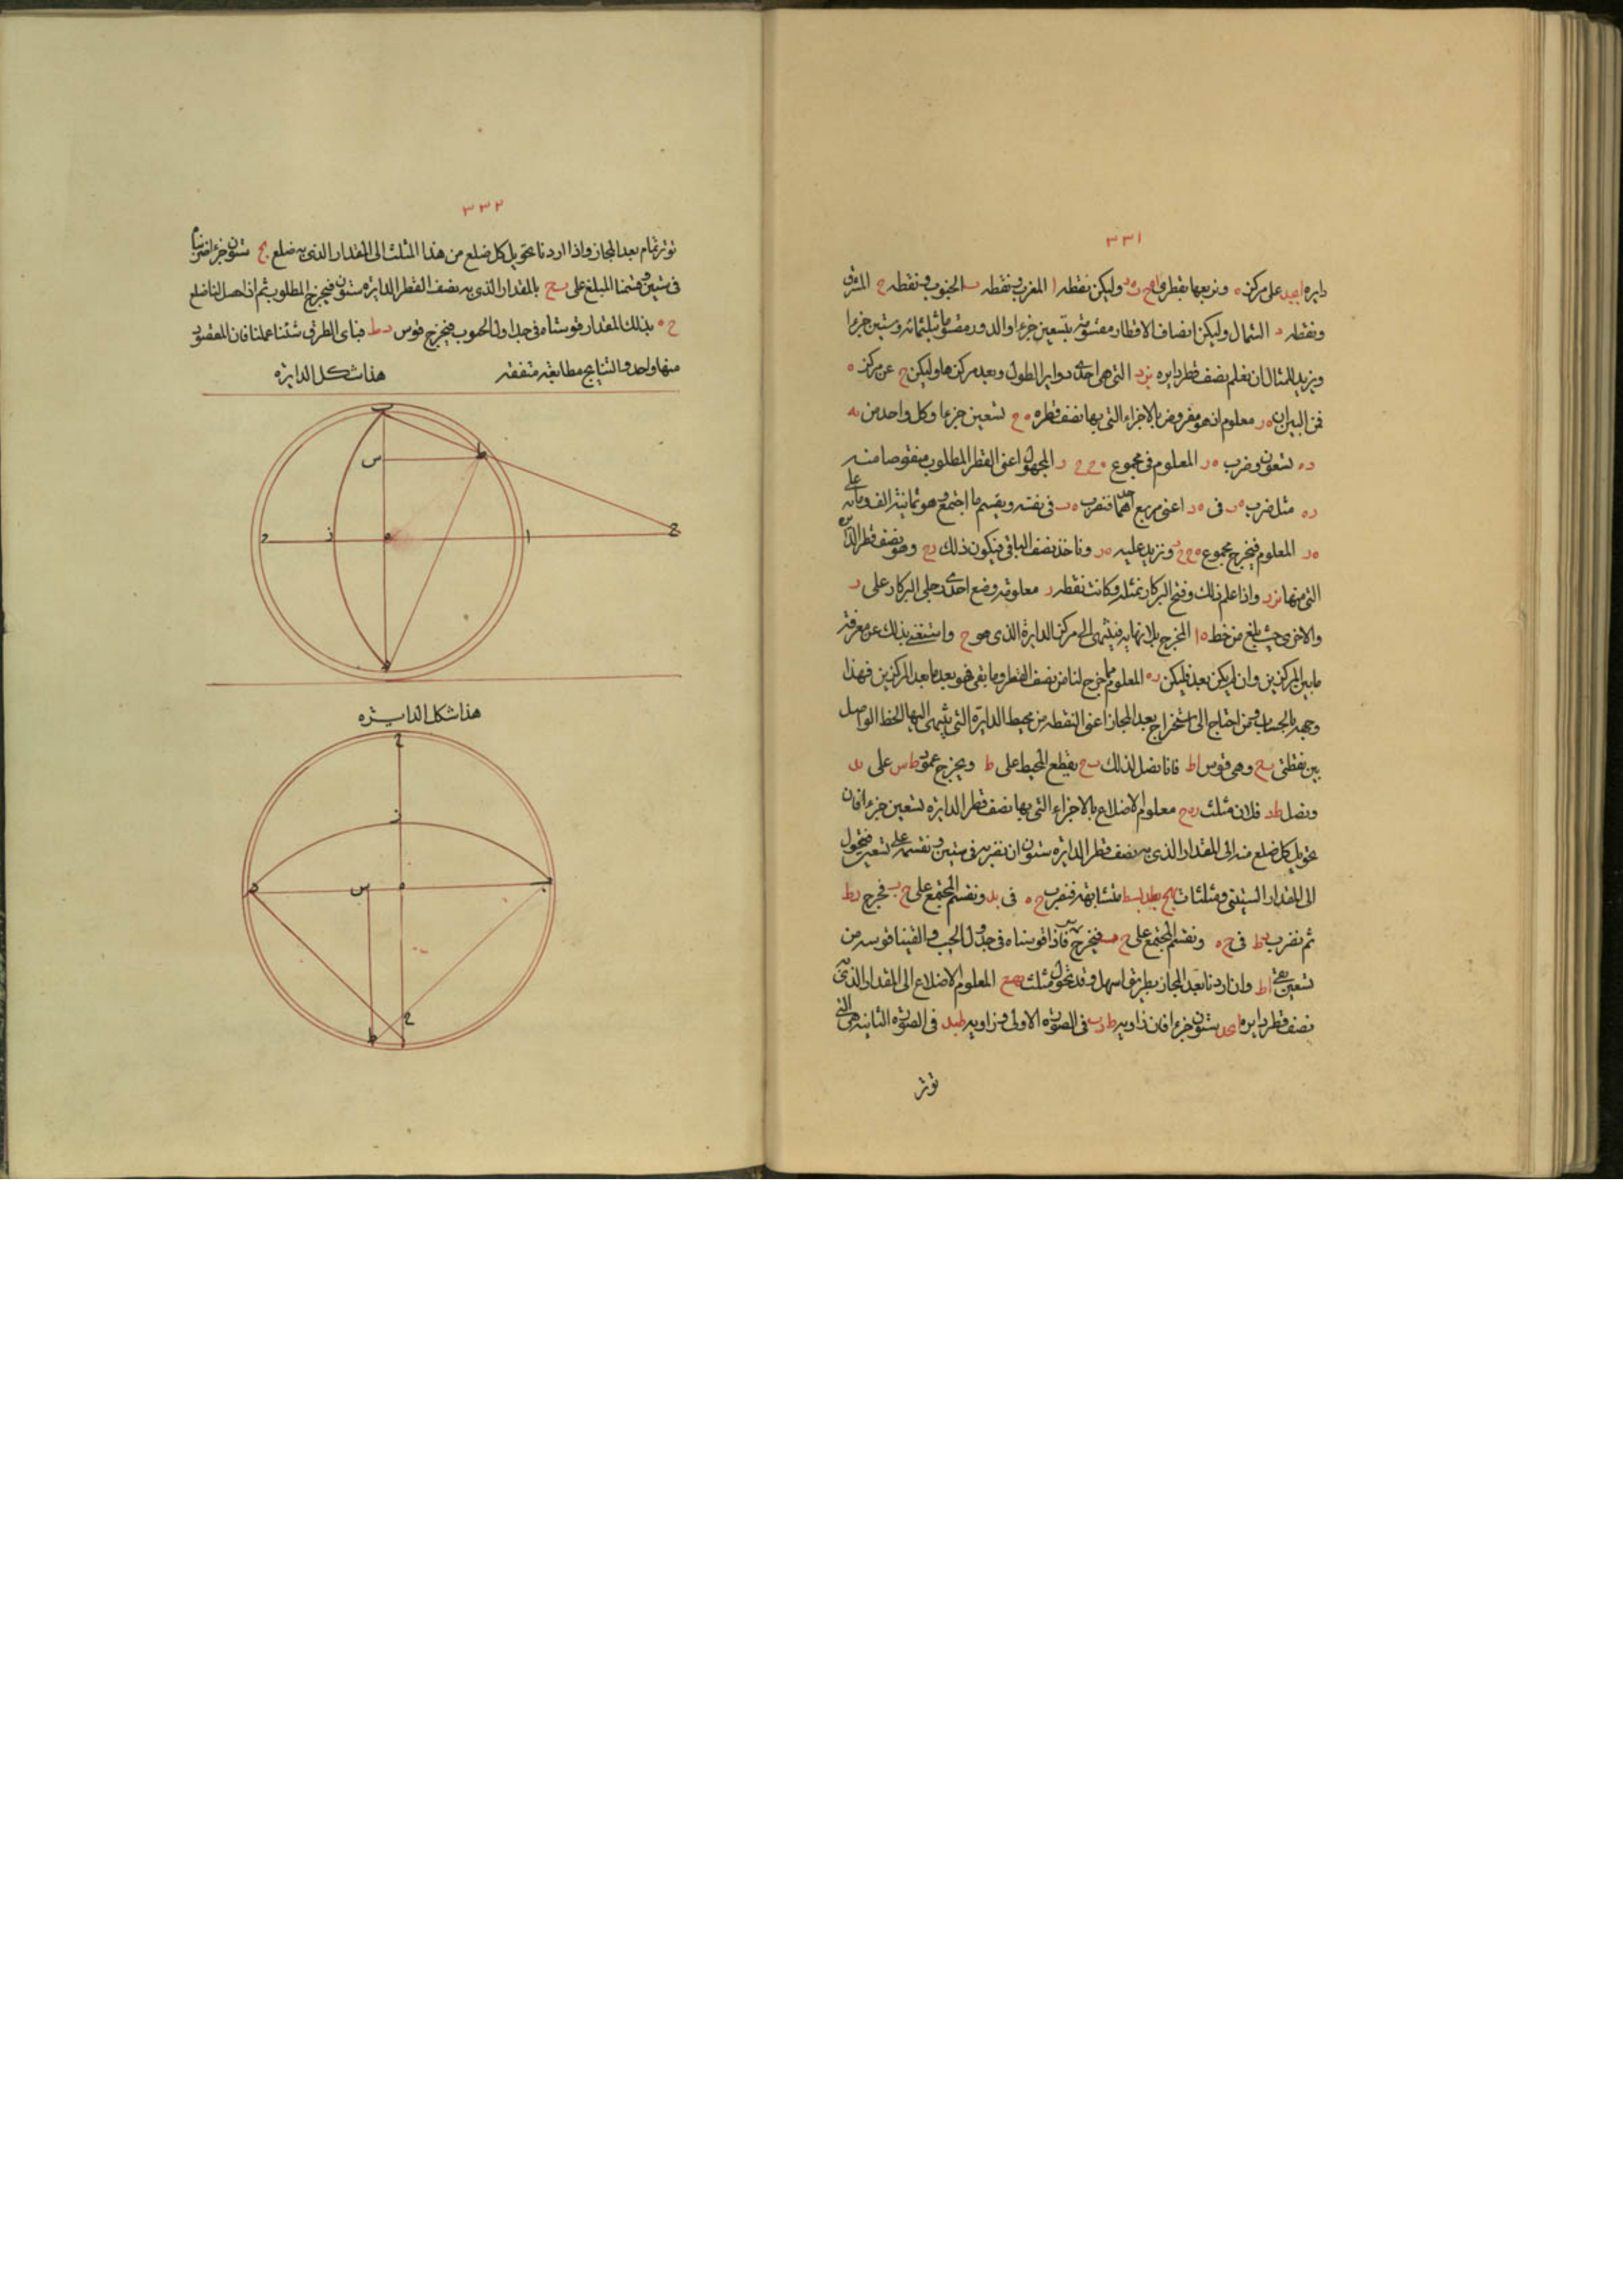 ٣٣١
دايره ابجد على مركز ه ونربعها بقطرى اج ب د وليكن نقطه ا المغرب ونقطه ب الجنوب ونقطه ج المشرق
ونقطه د الشمال وليكن انصاف الاقطار مقسومة بتسعين جزءا والدور مقسوما بثلثمائه وستين جزءا
ونريد للمثال ان نعلم نصف قطر دايره التى هى احدى دواير الطول وبعد مركزها وليكن ح عن مركز ه
فمن البين ان ه ز معلوم اذ هو مفروض بالاجزاء التى بها نصف قطر ه ج تسعين جزءا وكل واحد من ب ه
د ه تسعون وضرب ه ز المعلوم فى مجموع المجهول اعنى القطر المطلوب منقوصا منه
ز ه مثل ضرب ه ب فى ه د اعنى مربع احدهما فنضرب ه ب فى نفسه ويقسم ما اجتمع وهو ثمانية الف ومائه على
ه ز المعلوم فيخرج مجموع ونزيد عليه ه ز وناخذ نصف الباقى فيكون ذلك ز ح وهو نصف قطر الدايره
التى منها ب ز د واذا علم ذلك وفتح البركار بمثله وكانت نقطه ز معلومة وضع احدى رجلى البركار على ز
والاخرى حيث بلغ من خط ه ا المخرج بلا نهايه فينتهى الى مركز الدايرة الذى هو ح واستغنى بذلك عن معرفة
ما بين المركزين وان لم يكن بعد فليكن ز ه المعلوم مما خرج لنا من نصف القطر وما بقى فهو بعد ما بعد المركزين فهذا
وجهه بالحساب ومن احتاج الى استخراج بعد المجاز اعنى النقطه من محيط الدايرة التى ينتهى اليها الخط الواصل
بين نقطتى ب ح وهى قوس اط فانا نصل لذلك ب ح يقطع المحيط على ط ونخرج عمود ط س على ب د
ونصل ط د فلان مثلث معلوم الاضلاع بالاجزاء التى بها نصف قطر الدايره تسعين جزءا فان
نحويل كل ضلع منه الى المقدار الذى به نصف قطر الدايره ستون ان نضربه فى ستين ونقسمه على تسعين فيتحول
الى المقدار الستينى ومثلثات متشابهة فنضرب ح ه فى ب د ونقسم المجتمع على ح ب فيخرج د ط
ثم نضرب د ط فى ح ه ونقسم المجتمع على فيخرج فاذا قوسناه فى جدول الجيب والقينا قوسه من
تسعين بقى اط وان اردنا بعد المجاز بطريق اسهل وقد تحول مثلث المعلوم الاضلاع الى المقدار الذى به
نصف قطر دايره ابجد ستون جزءا فان زاويه ط د ب فى الصورة الاولى وزاويه ط ب د فى الصورة الثانيه هى التى
توتر
٣٣٢
توتر تمام بعد المجاز واذا اردنا نحويل كل ضلع من هذا المثلث الى المقدار الذى به ضلع ب ح ستون جزءا ضربناه
فى ستين وقسمنا المبلغ على ب ح بالمقدار الذى به نصف القطر الدايره ستون فيخرج المطلوب ثم اذا حصل لنا ضلع
ح ه بذلك المقدار قوسناه فى جداول الجيوب فيخرج قوس د ط فباى الطرق شئنا عملنا فان المقصود
منها واحد والنتايج مطابقة متفقه هذا شكل الدايره
ب
ط
س
ح
ا
ه
ز
د
هذا شكل الدايره
ج
ز
ب
ه
س
د
ح
ط
ا